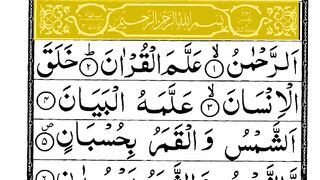 بِسْمِ اللّٰهِ الرَّحْمٰنِ الرَّحِيْمِ
اَلرَّحْمٰنُ ۙ﴿۱﴾ عَلَّمَ الْقُرْاٰنَ ؕ﴿۲﴾ خَلَقَ
الْاِنْسَانَ ۙ﴿۳﴾ عَلَّمَهُ الْبَيَانَ ﴿۴﴾
اَلشَّمْسُ وَالْقَمَرُ بِحُسْبَانٍ ۪﴿۵﴾